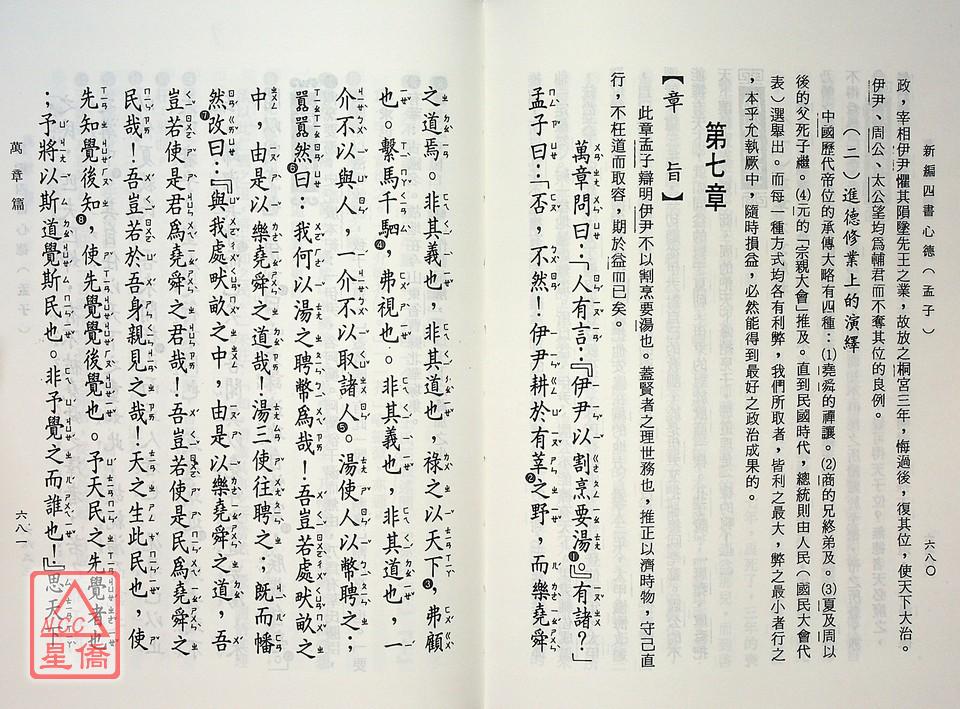 新編四書心德（孟子）
六八〇
政，宰相伊尹懼其隕墜先王之業，故放之桐宮三年，悔過後，復其位，使天下大治。
伊尹、周公、太公望均爲輔君而不奪其位的良例。
（二）進德修業上的演繹
中國歷代帝位的承傳大略有四種：⑴堯舜的禪讓。⑵商的兄終弟及。⑶夏及周以
後的父死子繼。⑷元的「宗親大會」推及。直到民國時代，總統則由人民（國民大會代
表）選舉出。而每一種方式均各有利弊，我們所取者，皆利之最大，弊之最小者行之
，本乎允執厥中，隨時損益，必然能得到最好之政治成果的。
第七章
【章　旨】
此章孟子辯明伊尹不以割烹要湯也。蓋賢者之理世務也，推正以濟時物，守己直
行，不枉道而取容，期於益而已矣。
萬章問曰：「人有言：『伊尹以割烹要湯❶。』有諸？」
孟子曰：「否，不然！伊尹耕於有莘❷之野，而樂堯舜
之道焉。非其義也，非其道也，祿之以天下❸，弗顧
也。繫馬千駟❹，弗視也。非其義也，非其道也，一
介不以與人，一介不以取諸人❺。湯使人以幣聘之；
囂囂然❻曰：『我何以湯之聘幣爲哉！吾豈若處畎畝之
中，由是以樂堯舜之道哉！湯三使往聘之；既而幡
然❼改曰：『與我處畎畝之中，由是以樂堯舜之道，吾
豈若使是君爲堯舜之君哉！吾豈若使是民爲堯舜之
民哉！吾豈若於吾身親見之哉！天之生此民也，使
先知覺後知❽，使先覺覺後覺也。予天民之先覺者也
；予將以斯道覺斯民也。非予覺之而誰也！』思天下
萬章篇
六八一
NCC
星僑